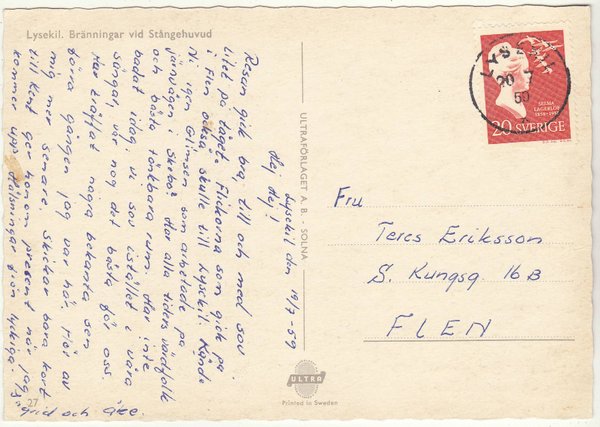 Lysekil. Bränningar vid Stångehuvud
Lysekil den 19/7-59
Hej Hej!
Resan gick bra, till och med sov
litet på tåget. Flickorna som gick på
i Flen också skulle till Lysekil. Kände
Ni igen Glimsén som arbetade på
järnvägen i Skebo? Har alla tiders värdfolk
och bästa tänkbara rum. Har inte
badat idag. Vi sov istället i våra
sängar, var nog det bästa för oss.
Har träffat några bekanta sen
förra gången jag var här. Hör av
mig mer senare. Skickar bara kort
till Kent ger honom present när jag
kommer upp. Hälsningar från lyckliga.
och Åke.
27
ULTRAFÖRLAGET A. B. - SOLNA
ULTRA
Printed in Sweden
LYSEKIL
20 7
SELMA
LAGERLÖF
1858-1958
20 SVERIGE
Fru
Teres Eriksson
S. Kungsg. 16 B
FLEN